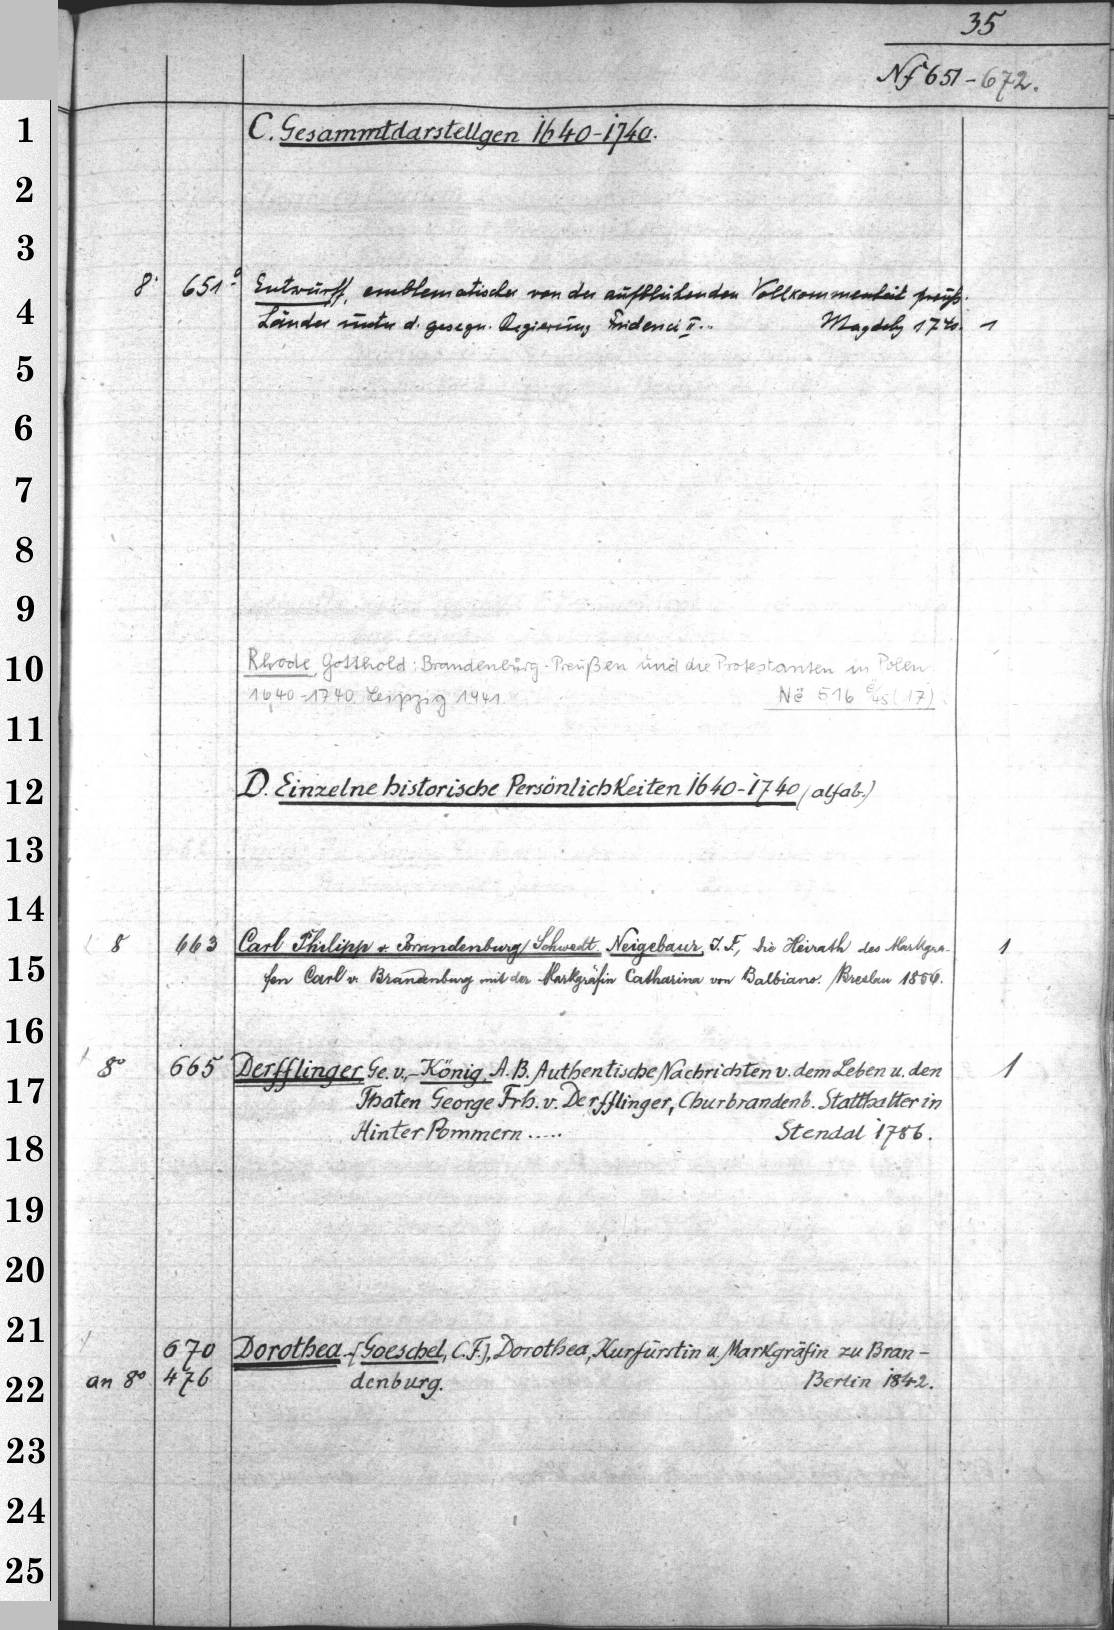 35
Nf 651-672.
1 C. Gesammtdarstellgen 1640-1740.
2
3
8° 651 a Entwurff, emblematischer von der aufblühenden Vollkommenheit preuß.
4 Länder unter d. gesegn. Regierung Friderici II.. Magdebg 174 1
5
6
7
8
9
10 Rhode, Gotthold: Brandenburg-Preußen und die Protestanten in Polen
1640-1740. Leipzig 1941. Në 516 e/45 (17)
11
12 D. Einzelne historische Persönlichkeiten 1640-1740 (alfab.)
13
14
8 663 Carl Philipp v. Brandenburg/Schwedt. Neigebaur, J. F., die Heirath des Markgra- 1
15 fen Carl v. Brandenburg mit der Markgräfin Catharina von Balbiano. Breslau 1856.
16
8° 665 Derfflinger, Ge. v.,-König, A.B. Authentische Nachrichten v. dem Leben u. den 1
17 Thaten George Frh. v. Derfflinger, Churbrandenb. Statthalter in
18 Hinter Pommern..... Stendal 1786.
19
20
21
670 Dorothea-[Goeschel, C.F.], Dorothea, Kurfürstin u. Markgräfin zu Bran-
22 an 8° 476 denburg. Berlin 1842.
23
24
25